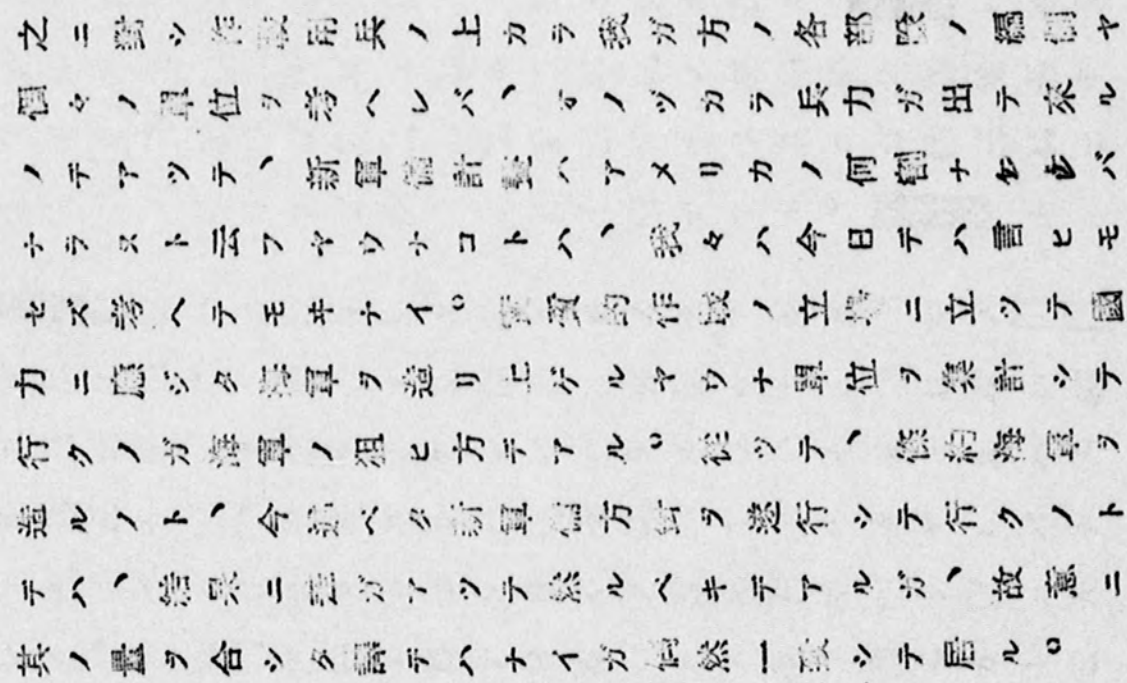 之ニ對シ作戰用兵ノ上カラ我ガ方ノ各部隊ノ編制ヤ
個々ノ單位ヲ考ヘレバ、オノヅカラ兵力ガ出テ來ル
ノデアツテ、新軍備計畫ハアメリカノ何割ナケレバ
ナラヌト云フヤウナコトハ、我々ハ今日デハ言ヒモ
セズ考ヘテモヰナイ。實質的作戰ノ立場ニ立ツテ國
力ニ應ジタ海軍ヲ造リ上ゲルヤウナ單位ヲ集計シテ
行クノガ海軍ノ狙ヒ方デアル。從ツテ、條約海軍ヲ
造ルノト、今述ベタ新軍備方針ヲ遂行シテ行クノト
デハ、結果ニ差ガアツテ然ルベキデアルガ、故意ニ
其ノ量ヲ合シタ譯デハナイガ偶然一致シテ居ル。